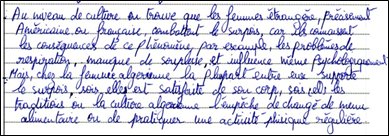 Au niveau de culture on trouve que les femmes étrangère, précisement
Américaine ou française, combattent le surpois, car ils connaissent
les conséquences de ce phénomène, par exemple, les problèmes de
respiration, manque de souplesse, et influence même psychologiquement
Mais, chez la femme algerienne la plupart entre eux supporte
le surpois, sois, elles est satisfaite de son corp, sois, les
traditions ou la culture algerienne l'empêche de changé de menu
alimentaire ou de pratiquer une activité phisique régulière.